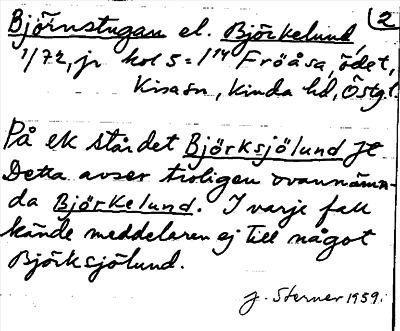 Björnstugan el. Björkelund, 2
1/72, jr kol 5 = 1/14 Fröåsa, ödet,
Kisa sn, Kinda hd, Östg.
På ek står det Björksjölund
Detta avser troligen ovannämn-
da Björkelund. I varje fall
kände meddelaren ej till något
Björksjölund.
J. Sterner 1959.